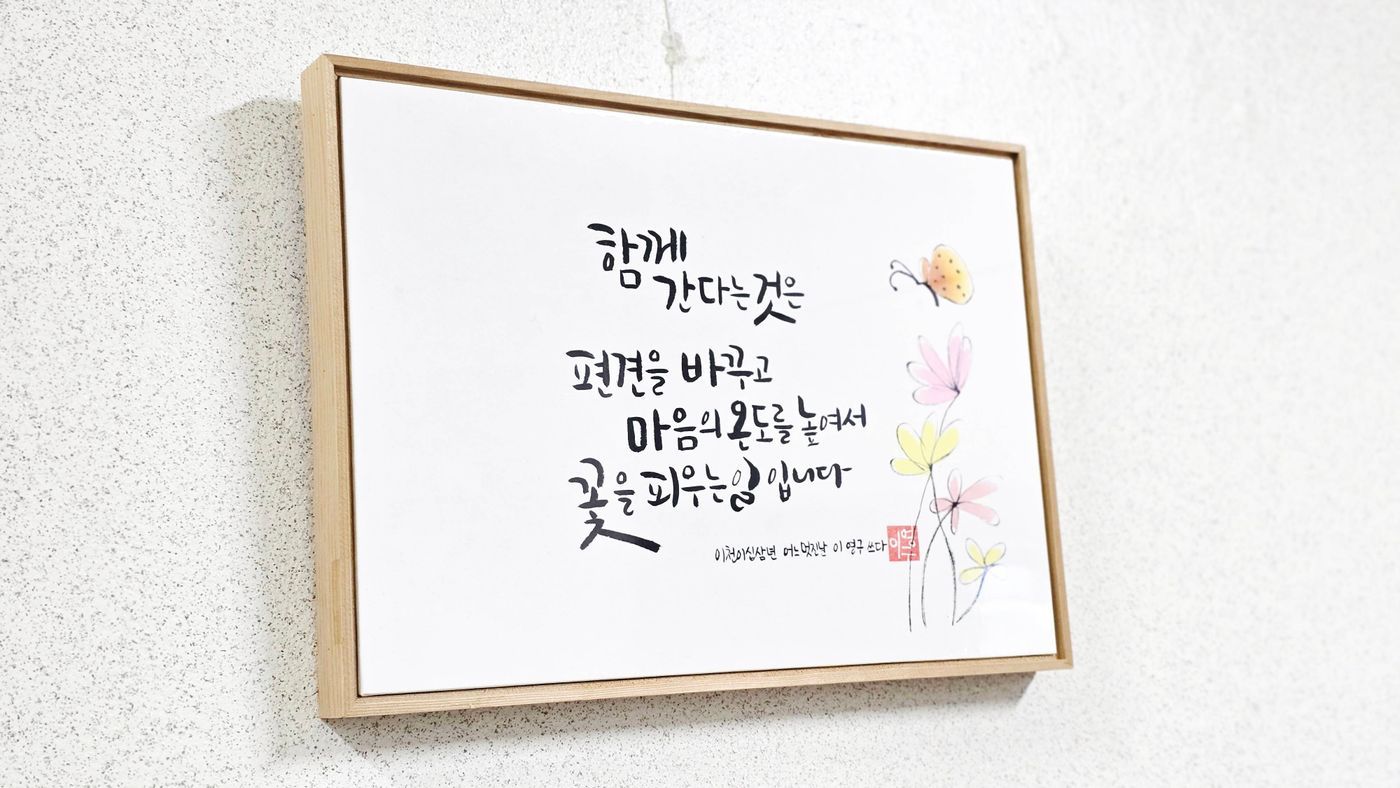 함께
간다는것은
편견을 바꾸고
마음의 온도를 높여서
꽃을 피우는일입니다
이천이십삼년 어느멋진날 이영구 쓰다
이영구